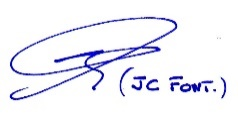 (JC FONT.)